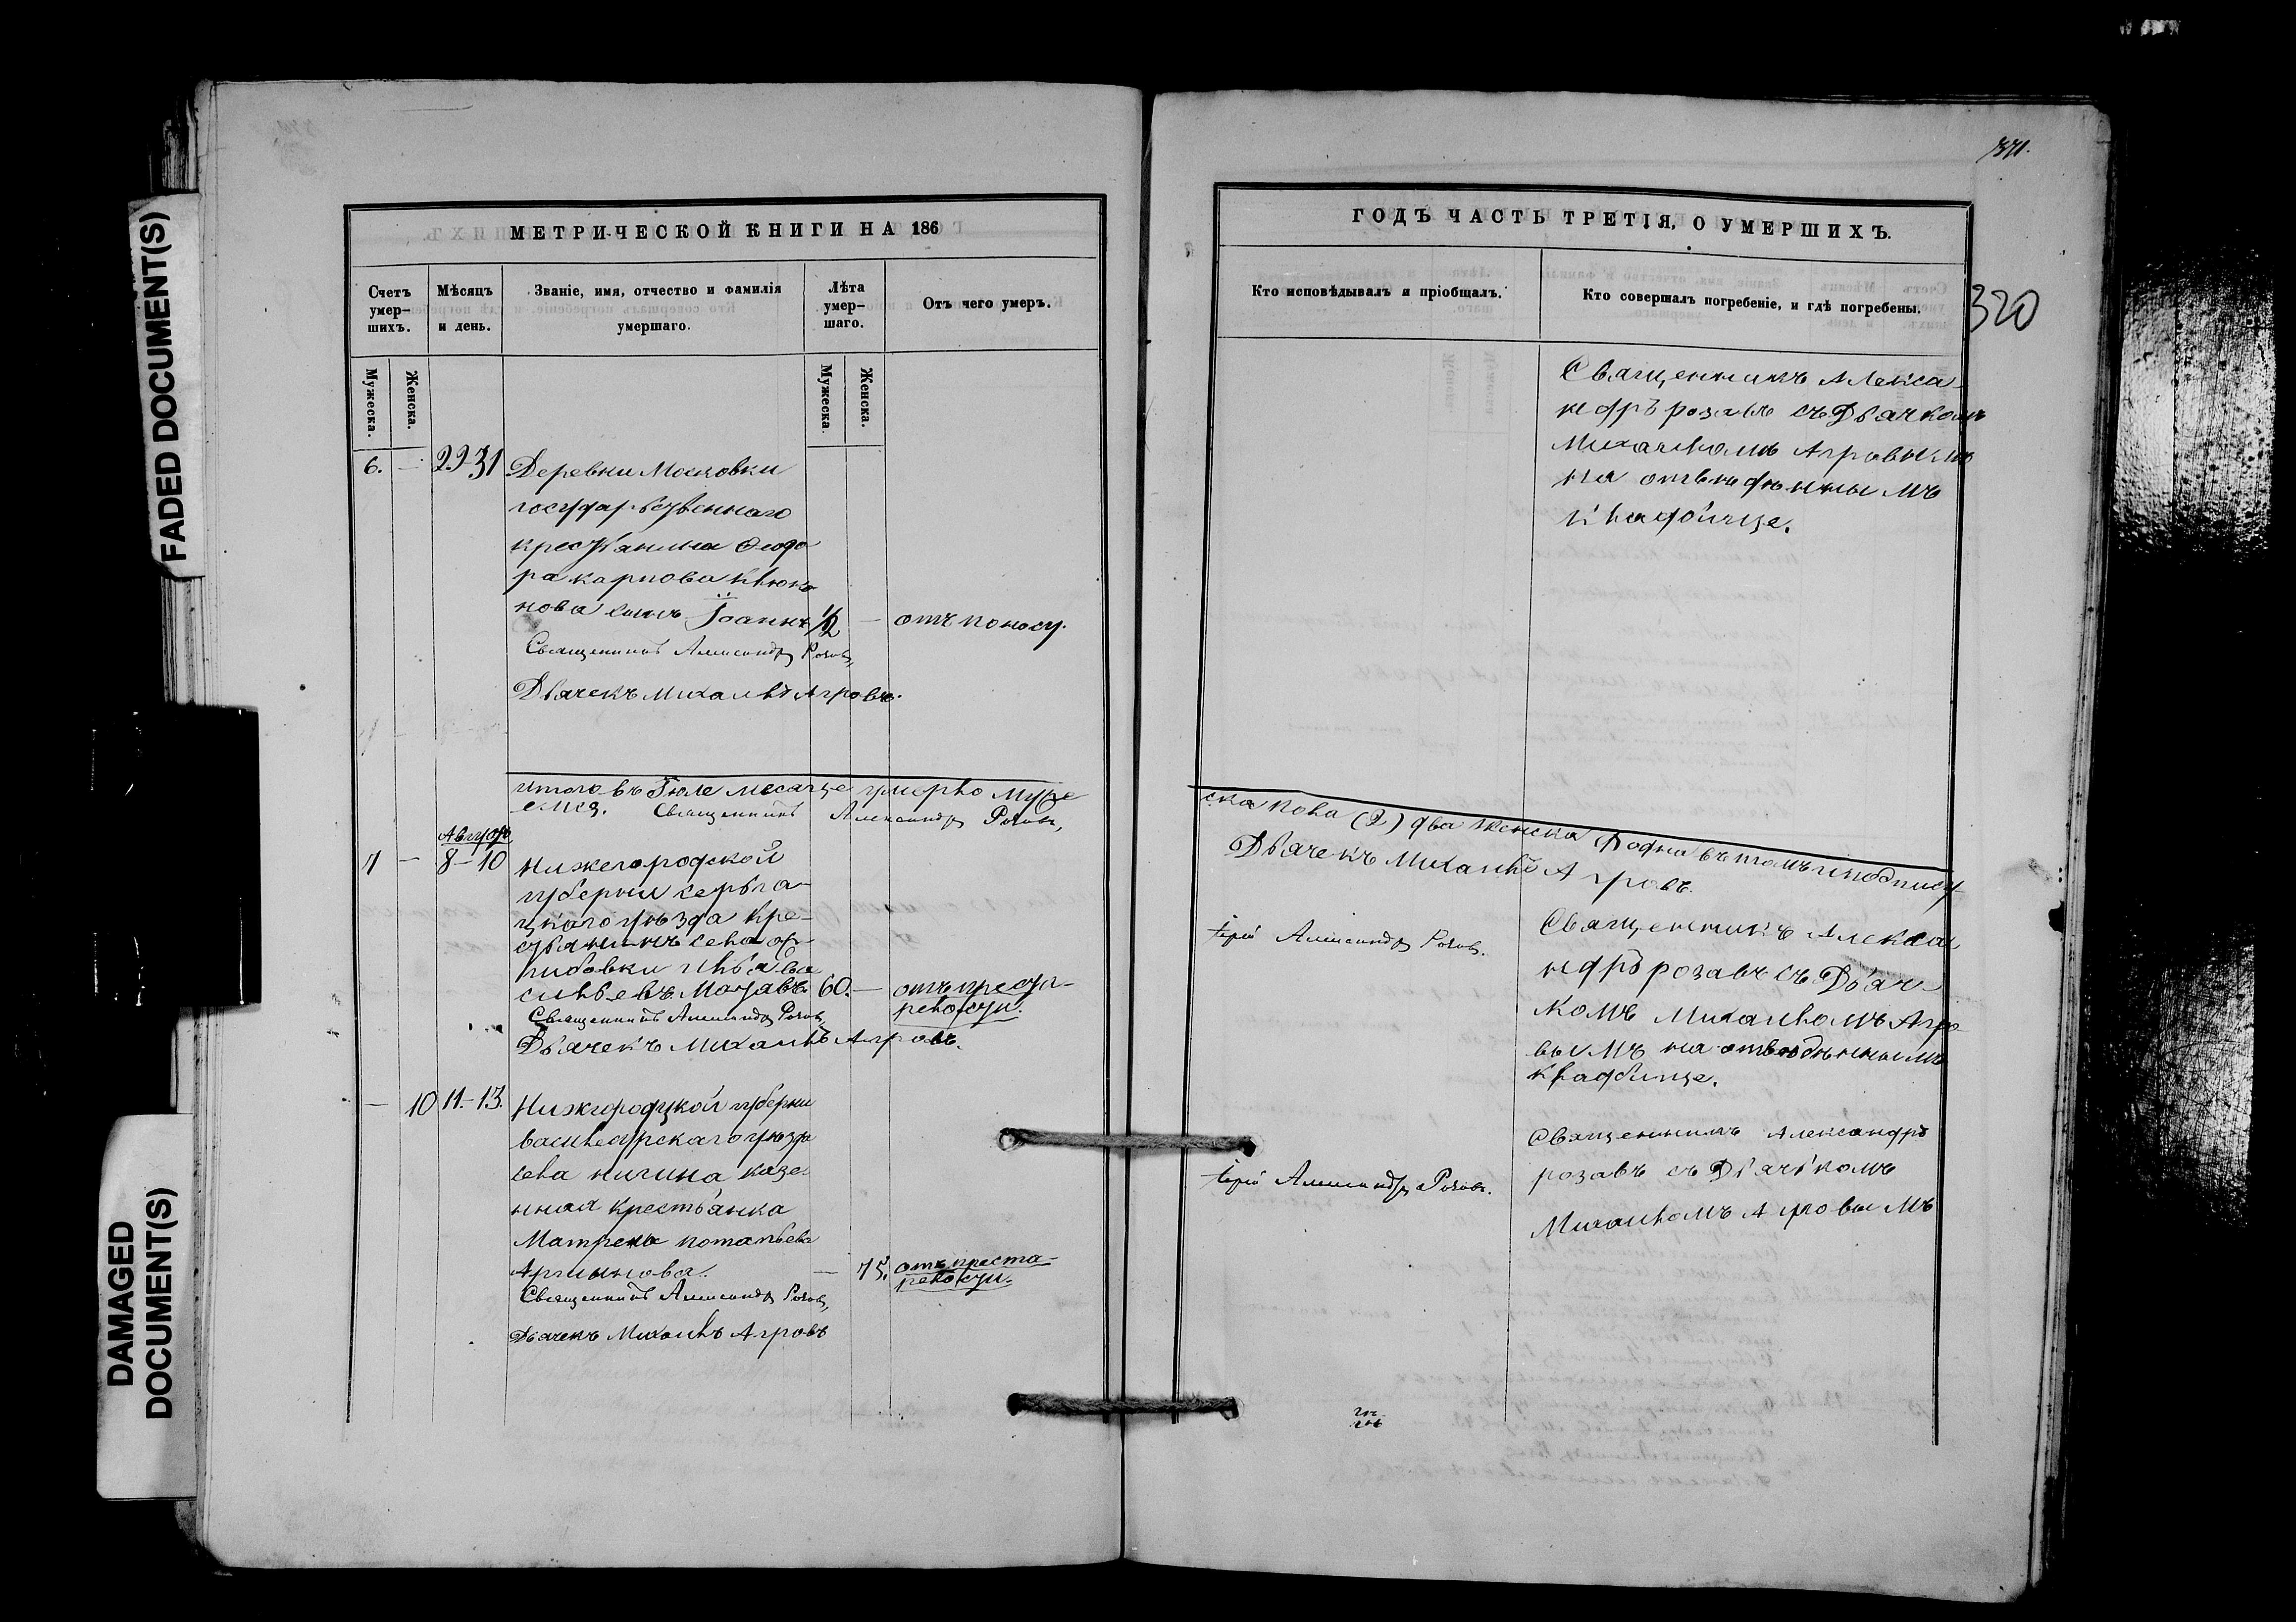 FADED DOCUMENT(S)
DAMAGED
DOCUMENT(S)
МЕТРИЧЕСКОЙ КНИГИ НА 186
Счетъ умер-шихъ.
Мѣсяцъ и день.
Званіе, имя, отчество и фамилія умершаго.
Лѣта умер-шаго.
Отъ чего умеръ.
Мужеска.
Женска.
Мужеска.
Женска.
6. — 29-31 Деревни Московки
государьственнаго
крестьянина Ѳеодо
ра карпова
нова сынъ Іоаннъ 1/2 — отъ поносу.
Священникъ Александръ Розовъ,
Дьячекъ Михаилъ Агровъ.
итого въ Іюле месяце умерло муже
Священникъ Александръ Розовъ,
Август
7 — 8-10 Нижегородской
губернии серьга-
цкаго уѣзда кре-
стьянинъ села
Илья ва
сильевъ 60. — отъ преста-
релости.
Священникъ Александръ Розовъ,
Дьячекъ Михаилъ Агровъ.
— 10 11-13. Нижгородцкой губерни
василсурскаго уезда
села казе
нная крестьянка
Матрена потапьева
— 75. отъ преста-
релости.
Священникъ Александръ Розовъ,
Дьячекъ Михаилъ Агровъ
371.
ГОДЪ ЧАСТЬ ТРЕТІЯ, О УМЕРШИХЪ.
Кто исповѣдывалъ и пріобщалъ.
Кто совершалъ погребеніе, и гдѣ погребены.
320
Священникъ Алекса
ндръ розавъ съ Дьячкомъ
Михаиломъ Агровымъ
на отведенномъ
кладбище.
ска пола (2) два женска одна въ томъ и подпису
Дьячекъ Михаилъ Агровъ.
Іерей Александръ Розовъ.
Священникъ Алекса
ндръ розавъ съ Дьяч-
комъ Михаиломъ Агро
вымъ на отведенномъ
кладбище.
Іерей Александръ Розовъ.
Священникъ Александръ
розавъ съ Дьячькомъ
Михаиломъ Агровымъ